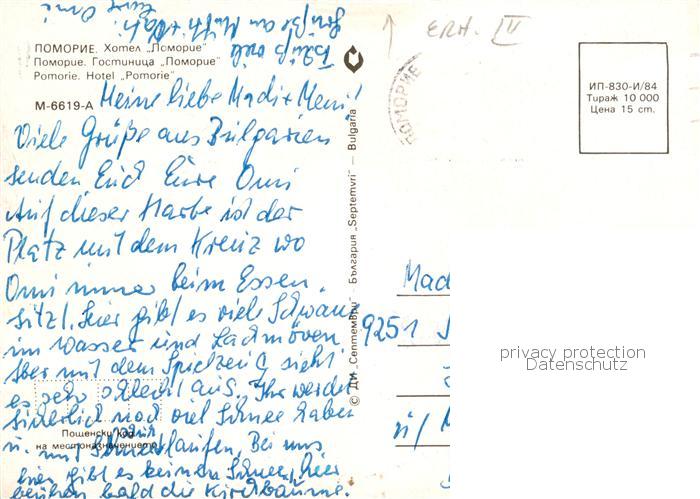 Eure Omi
Grüße an Mutti + Vati
ПОМОРИЕ. Хотел „Поморие"
Поморие. Гостиница „Поморие"
Pomorie. Hotel „Pomorie"
М-6619-А
Meine liebe Madi + Meni!
Viele Grüße aus Bulgarien
senden Euch Eure Omi
Auf dieser Karte ist der
Platz mit dem Kreuz wo
Omi immer beim Essen
sitzt. Hier gibt es viele Schwäne
im Wasser und Lachmöven
Aber mit dem Spielzeug sieht
es sehr schlecht aus. Ihr werdet
sicherlich noch viel Schnee haben
u. mit Schlittenlaufen. Bei uns
hier gibt es keinen Schnee, hier
blühen bald die Kirschbäume.
Пощенски код
на местоназначението
© ДИ „Септември" – България „Septemvri" – Bulgaria
ERH. III
ПОМОРИЕ
ИП-830-И/84
Тираж 10 000
Цена 15 ст.
Mad
9251
privacy protection
Datenschutz